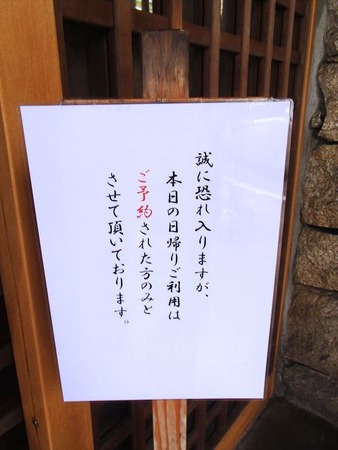 誠に恐れ入りますが、
本日の日帰りご利用は
ご予約された方のみと
させて頂いております。